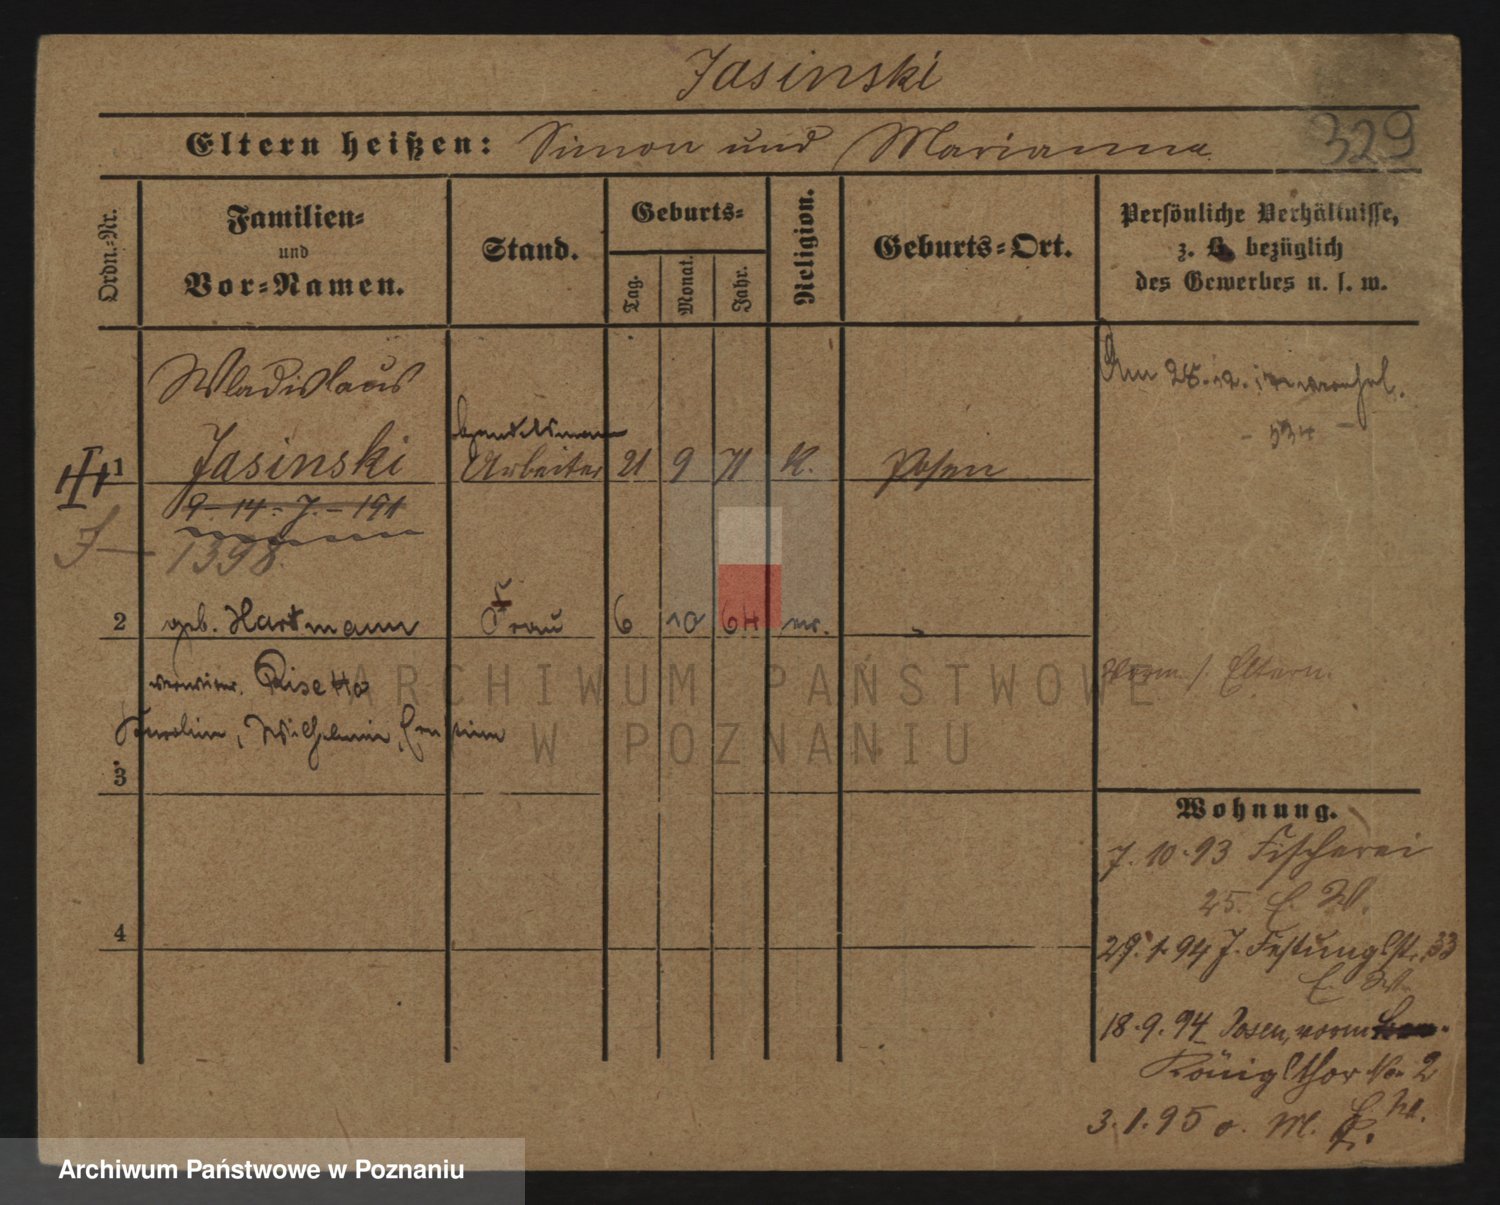 Jasinski
Eltern heißen: Simon und Marianna
329
Ordn.-Nr.
Familien-
und
Vor-Namen.
Stand.
Geburts-
Tag.
Monat.
Jahr.
Religion.
Geburts-Ort.
Persönliche Verhältnisse,
z. B. bezüglich
des Gewerbes u. s. w.
Wladislaus
Am 28.12.
Handelsmann
1 Jasinski Arbeiter 21 9 71 K. Posen
9-14-7.-191
J — 1398.
2 geb. Hartmann Frau 6 10 64 ev.
Karolina, Wilhelmine, Ernstine
Eltern.
3
Wohnung.
7.10.93 Fischerei
25. E. W.
4
29.1.94 J. Festungsstr. 33
E. W.
18.9.94 Posen, vorm
Königsthor No 2
3.1.95 o. M.
ARCHIWUM PAŃSTWOWE
W POZNANIU
Archiwum Państwowe w Poznaniu